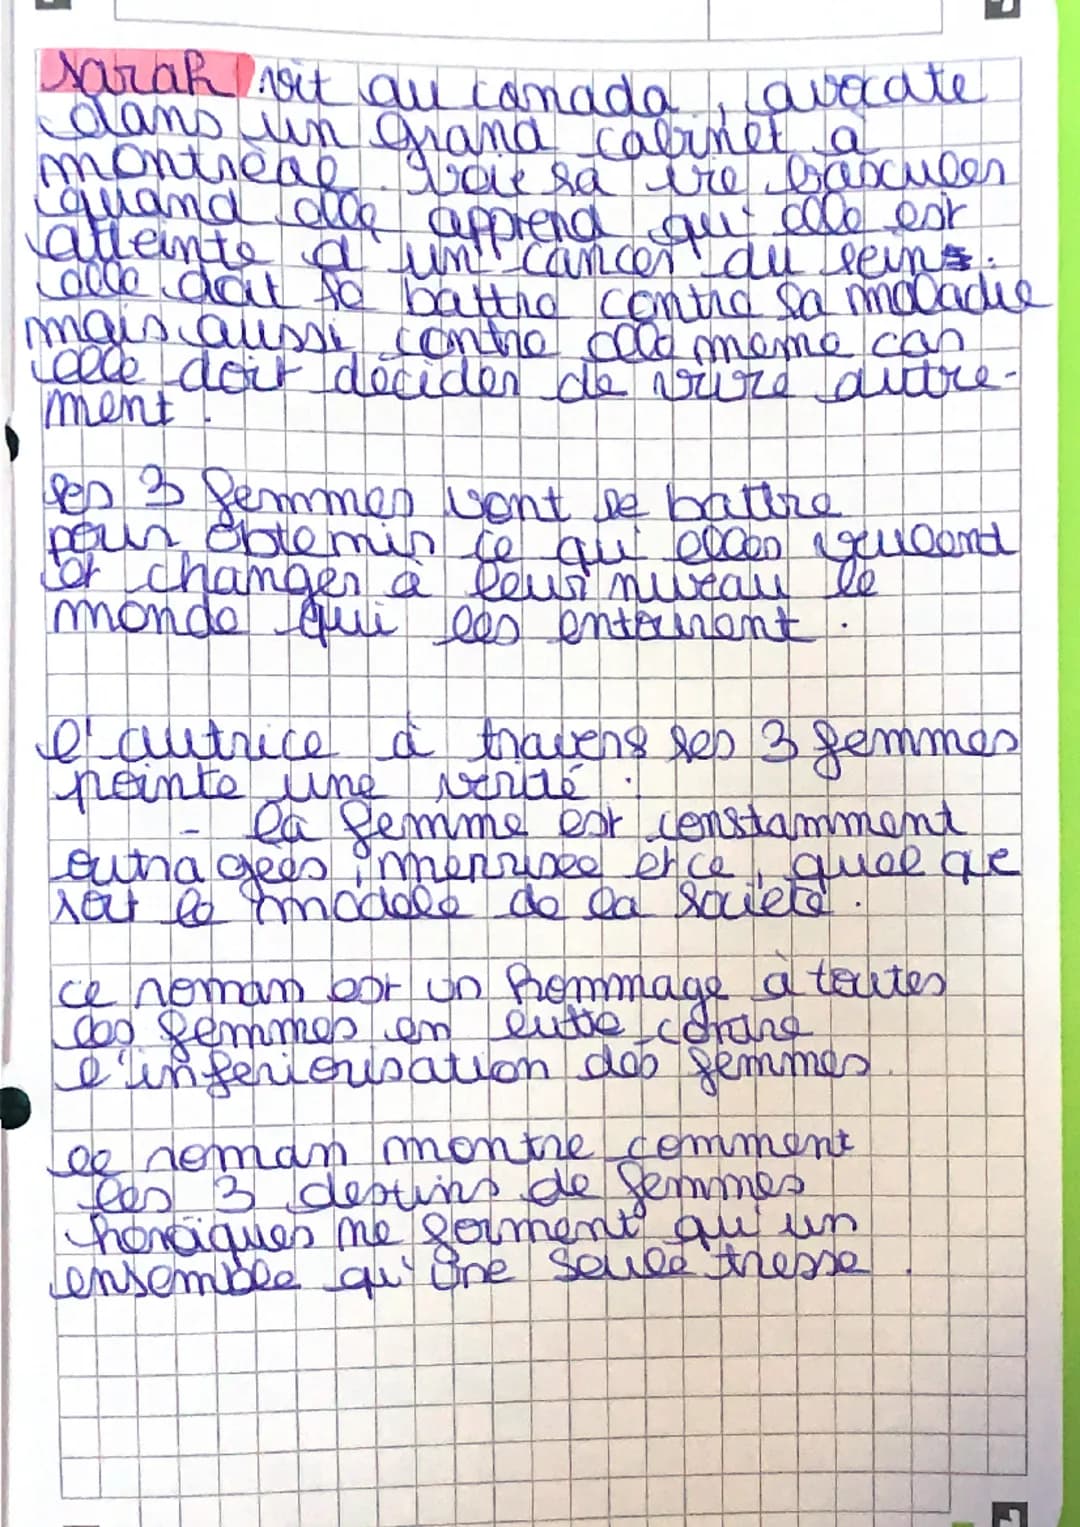 Sarah vit au canada, avocate
dans un grand cabinet à
montréal. Voit sa vie basculer
quand elle apprend qu'elle est
atteinte d'un cancer du sein.
elle doit se battre contre sa maladie
mais aussi contre elle meme car
elle doit décider de vivre autre-
ment.
ses 3 femmes vont se battre
pour obtenir ce qu'elles veulend
et changer à leur niveau le
monde qui les entourent.
l'autrice à travers ses 3 femmes
pointe une vérité :
- la femme est constamment
outragées, meprisée et ce, quel que
soit le modele de la société.
ce roman est un hommage à toutes
les femmes en lutte contre
l'inferiorisation des femmes.
le roman montre comment
les 3 destins de femmes
heroïques ne forment qu'un
ensemble qu'une seule tresse.